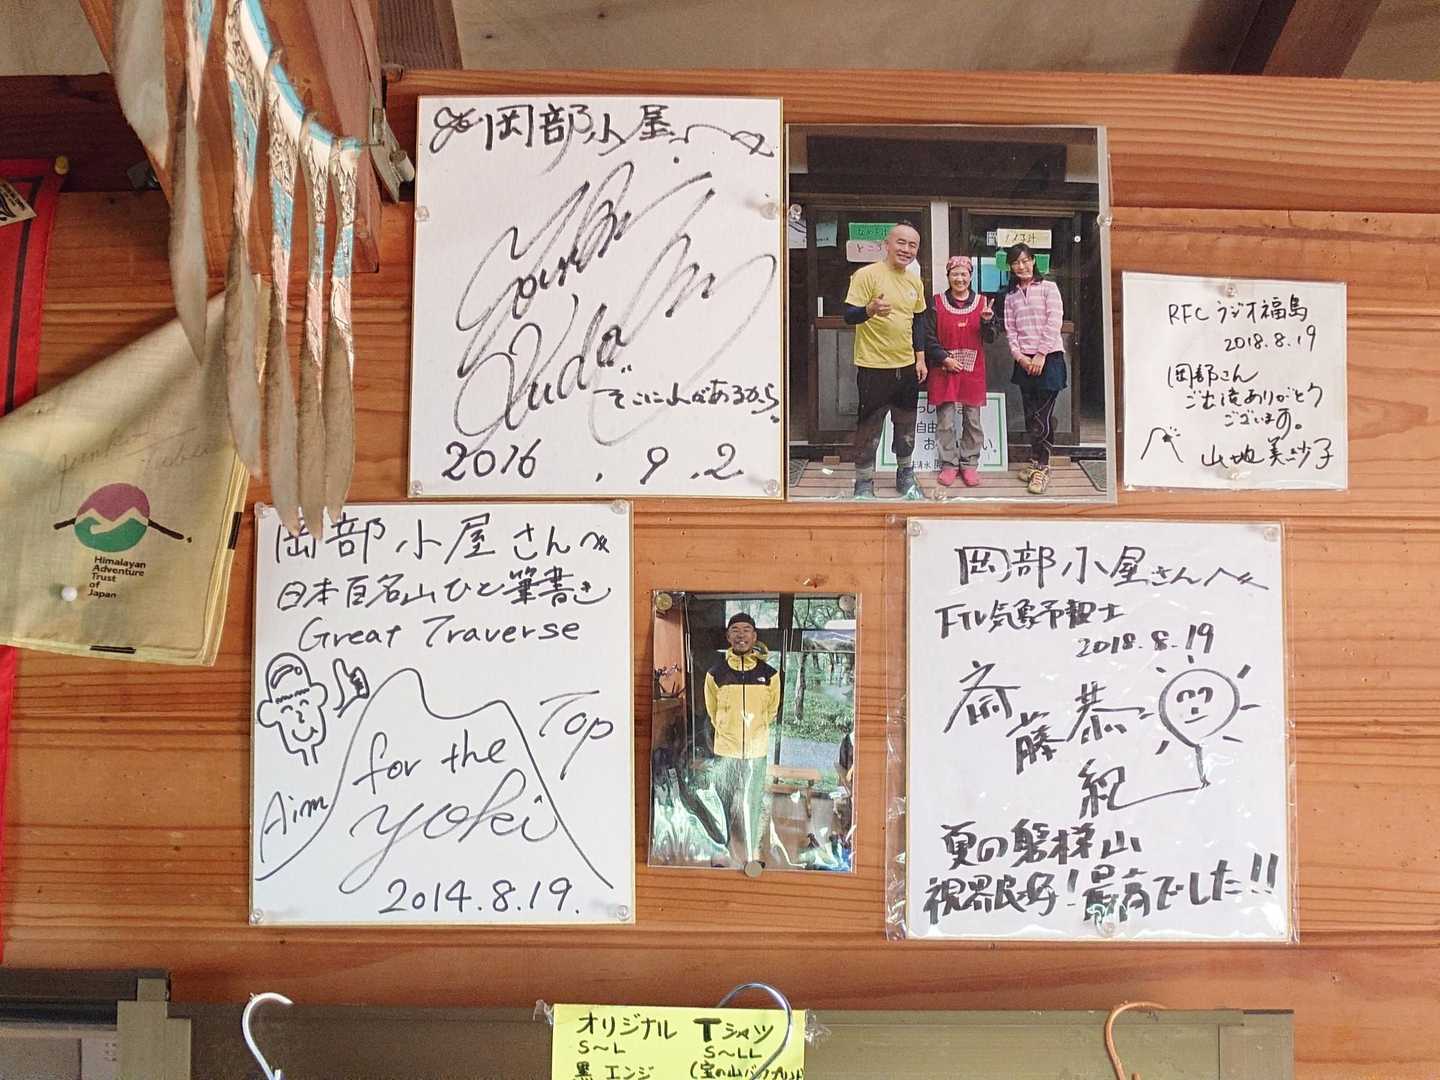 岡部小屋さんへ
2016.9.2
そこに山があるから。
なめこ汁
自由
RFCラジオ福島
2018.8.19
岡部さん
ご支援ありがとう
ございます。
山地美紗子
Himalayan
Adventure
Trust
of
Japan
岡部小屋さんへ
日本百名山ひと筆書き
Great Traverse
Aim
for the
Top
yoki
2014.8.19.
岡部小屋さんへ
FTV気象予報士
2018.8.19
斎藤恭紀
夏の磐梯山
視界良好!最高でした!!
オリジナル Tシャツ
S〜L S〜LL
黒 エンジ (宝の山バックプリント